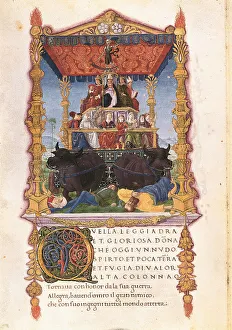 QVELLA LEGGIADRA
ET GLORIOSA DONA
CHE OGGI NVDO
SPIRTO ET POCATERA
ET FV GIA DI VALOR
ALTA COLONNA
Tornaua con honor da la sua guerra
Allegra, hauendo uinto il gran nemico
Che con suo ingegni tutto il mondo atterra.